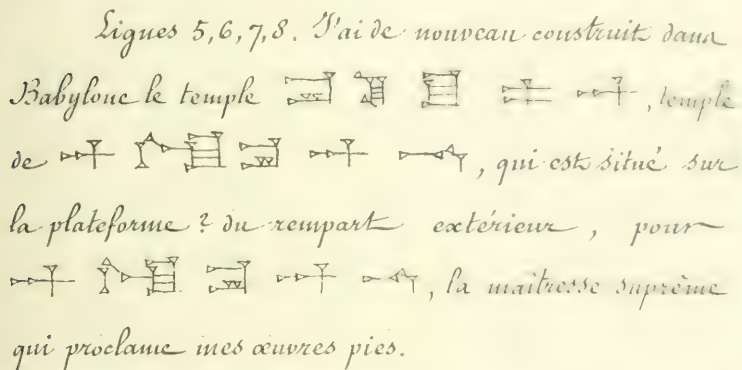 Lignes 5, 6, 7, 8. J'ai de nouveau construit dans
Babylone le temple 𒂍 𒆠 𒆪 𒉺 𒀭, temple
de 𒀭 𒎏 𒂍 𒀭 𒈾, qui est situé sur
la plateforme ? du rempart extérieur, pour
𒀭 𒎏 𒂍 𒀭 𒈾, la maîtresse suprême
qui proclame mes œuvres pies.